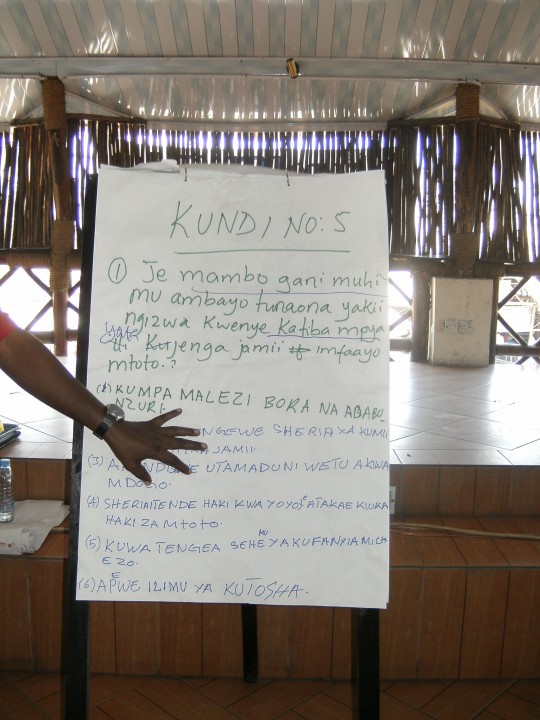 KUNDI NO: 5
① Je mambo gani muhi-
mu ambayo tunaona yakii
ngizwa kwenye Katiba mpya
yata
Kujenga jamii imfaayo
mtoto.?
KUMPA MALEZI BORA NA ABABU
NZURI.
NGEWE SHERIA YA KUMLI
JAMII
(3) UTAMADUNI WETU AKIWA
MDOGO.
(4) SHERIA ITENDE HAKI KWA YOYOTE ATAKAE KIUKA
HAKI ZA MTOTO.
(5) KUWA TENGEA SEHEMU YA KUFANYIA MICH
EZO.
(6) APEWE ILIMU YA KUTOSHA.